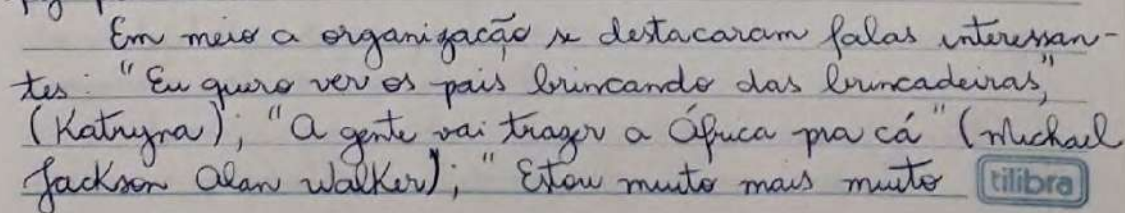 Em meio a organização se destacaram falas interessan-
tes: "Eu quero ver os pais brincando das brincadeiras",
(Katryna); "A gente vai trazer a África pra cá" (Michael
Jackson Alan Walker); "Estou muito mais muito
tilibra